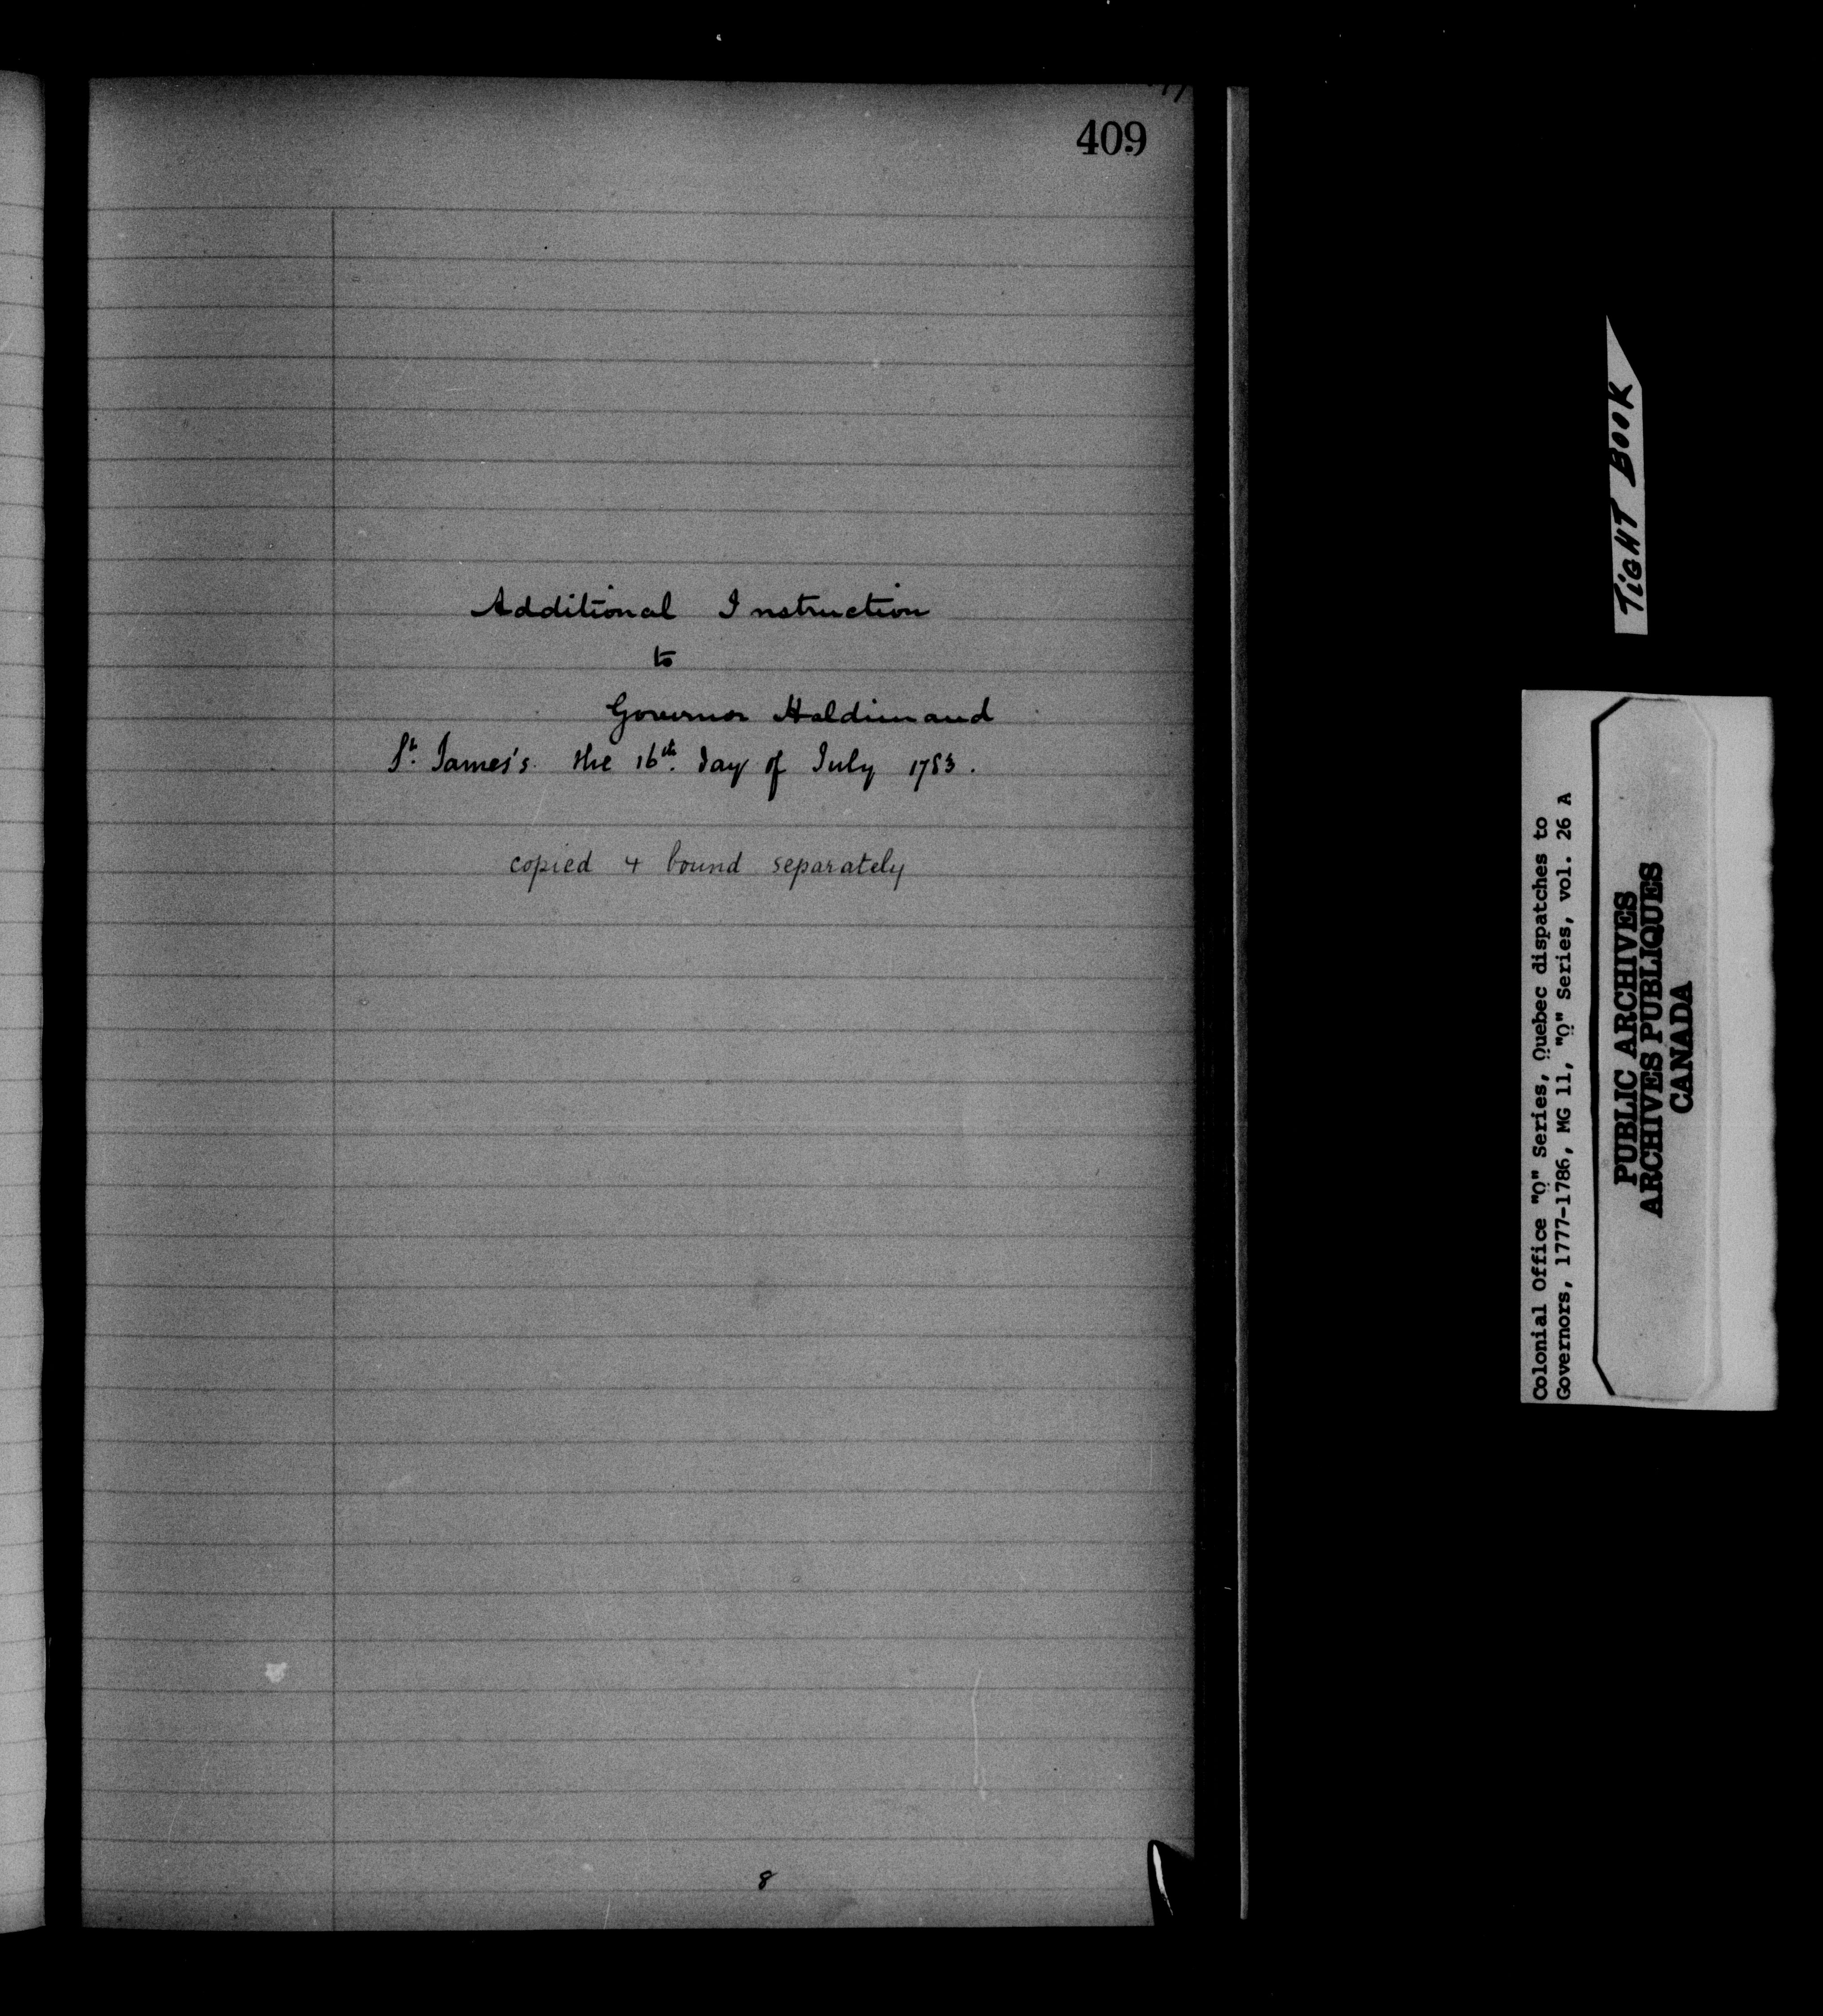 409
Additional Instruction
to
Governor Haldimand
St. James's. the 16th. day of July 1783.
copied & bound separately
8
TiGHT BOOK
Colonial Office "Q" Series, Quebec dispatches to
Governors, 1777-1786, MG 11, "Q" Series, vol. 26 A
PUBLIC ARCHIVES
ARCHIVES PUBLIQUES
CANADA